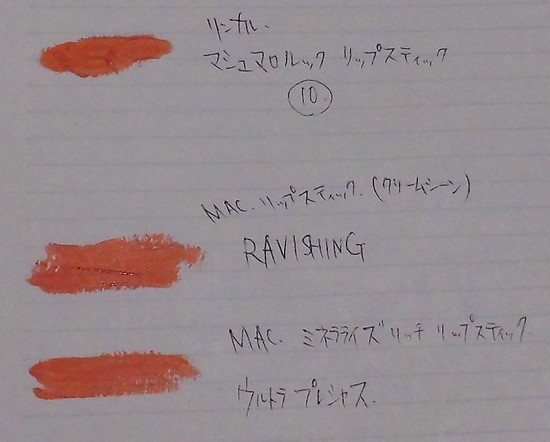 リンメル.
マシュマロルック リップスティック
10
MAC. リップスティック. (クリームシーン)
RAVISHING
MAC. ミネラライズリッチ リップスティック.
ウルトラ プレシャス.